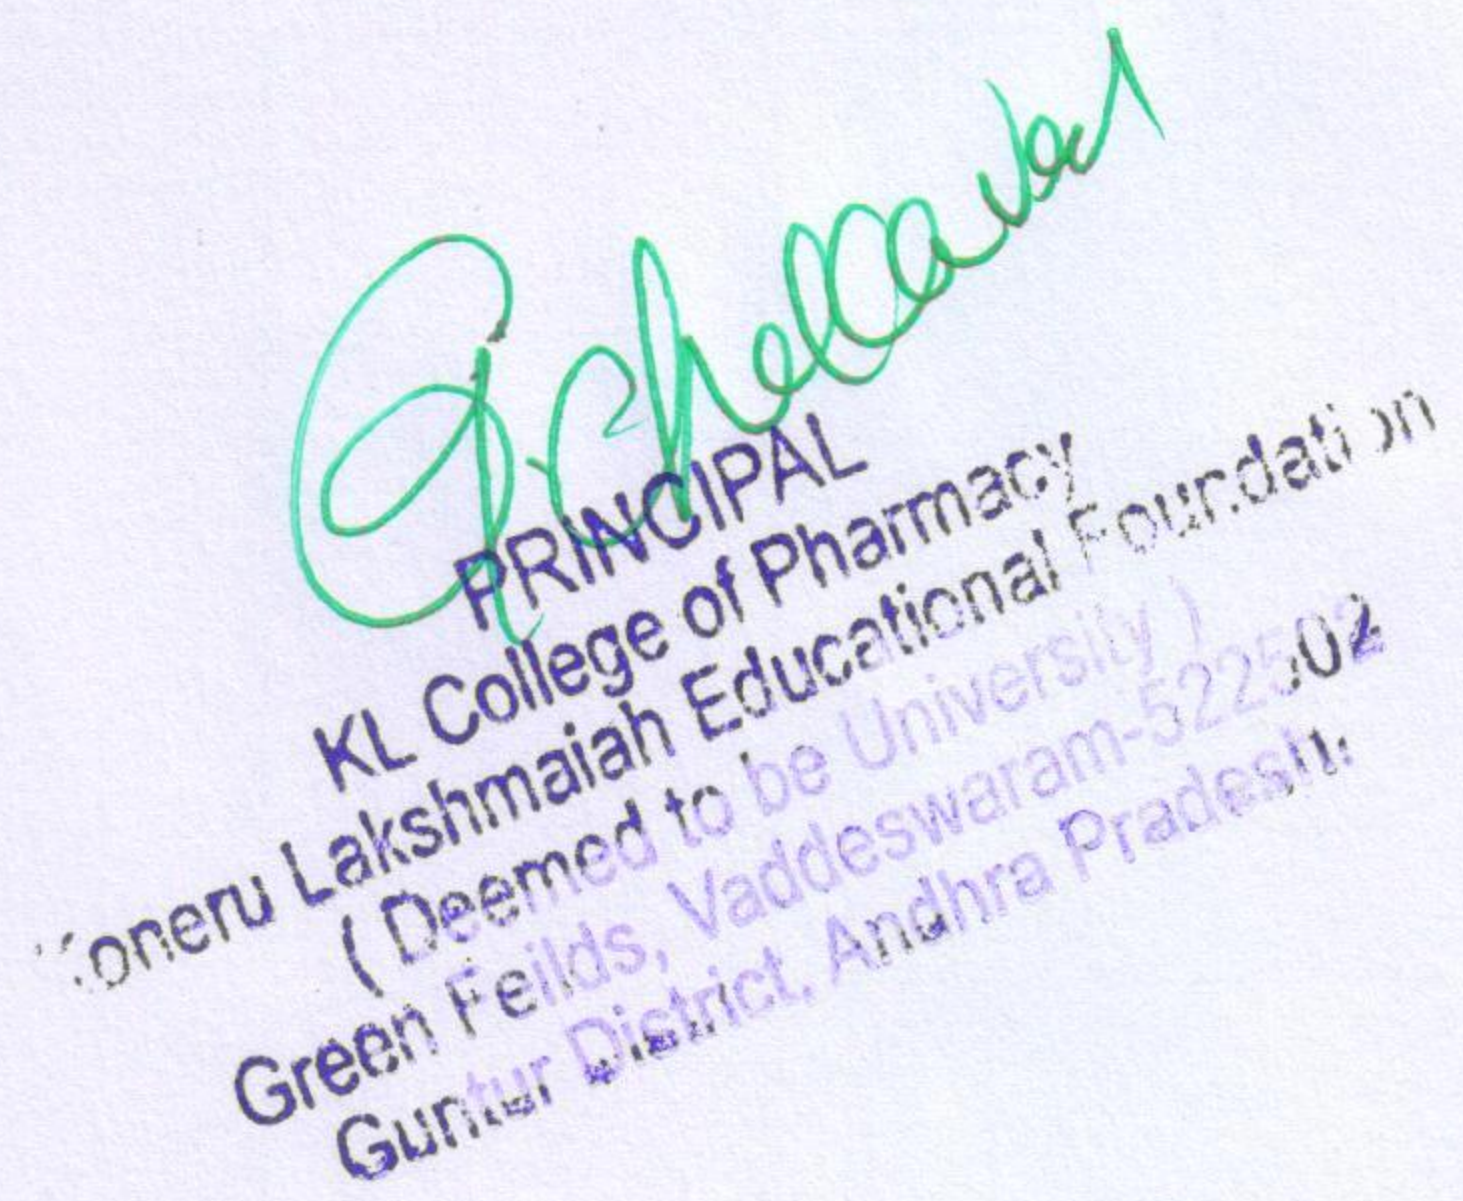 PRINCIPAL
KL College of Pharmacy
Koneru Lakshmaiah Educational Foundation
( Deemed to be University )
Green Feilds, Vaddeswaram-522502
Guntur District, Andhra Pradesh.